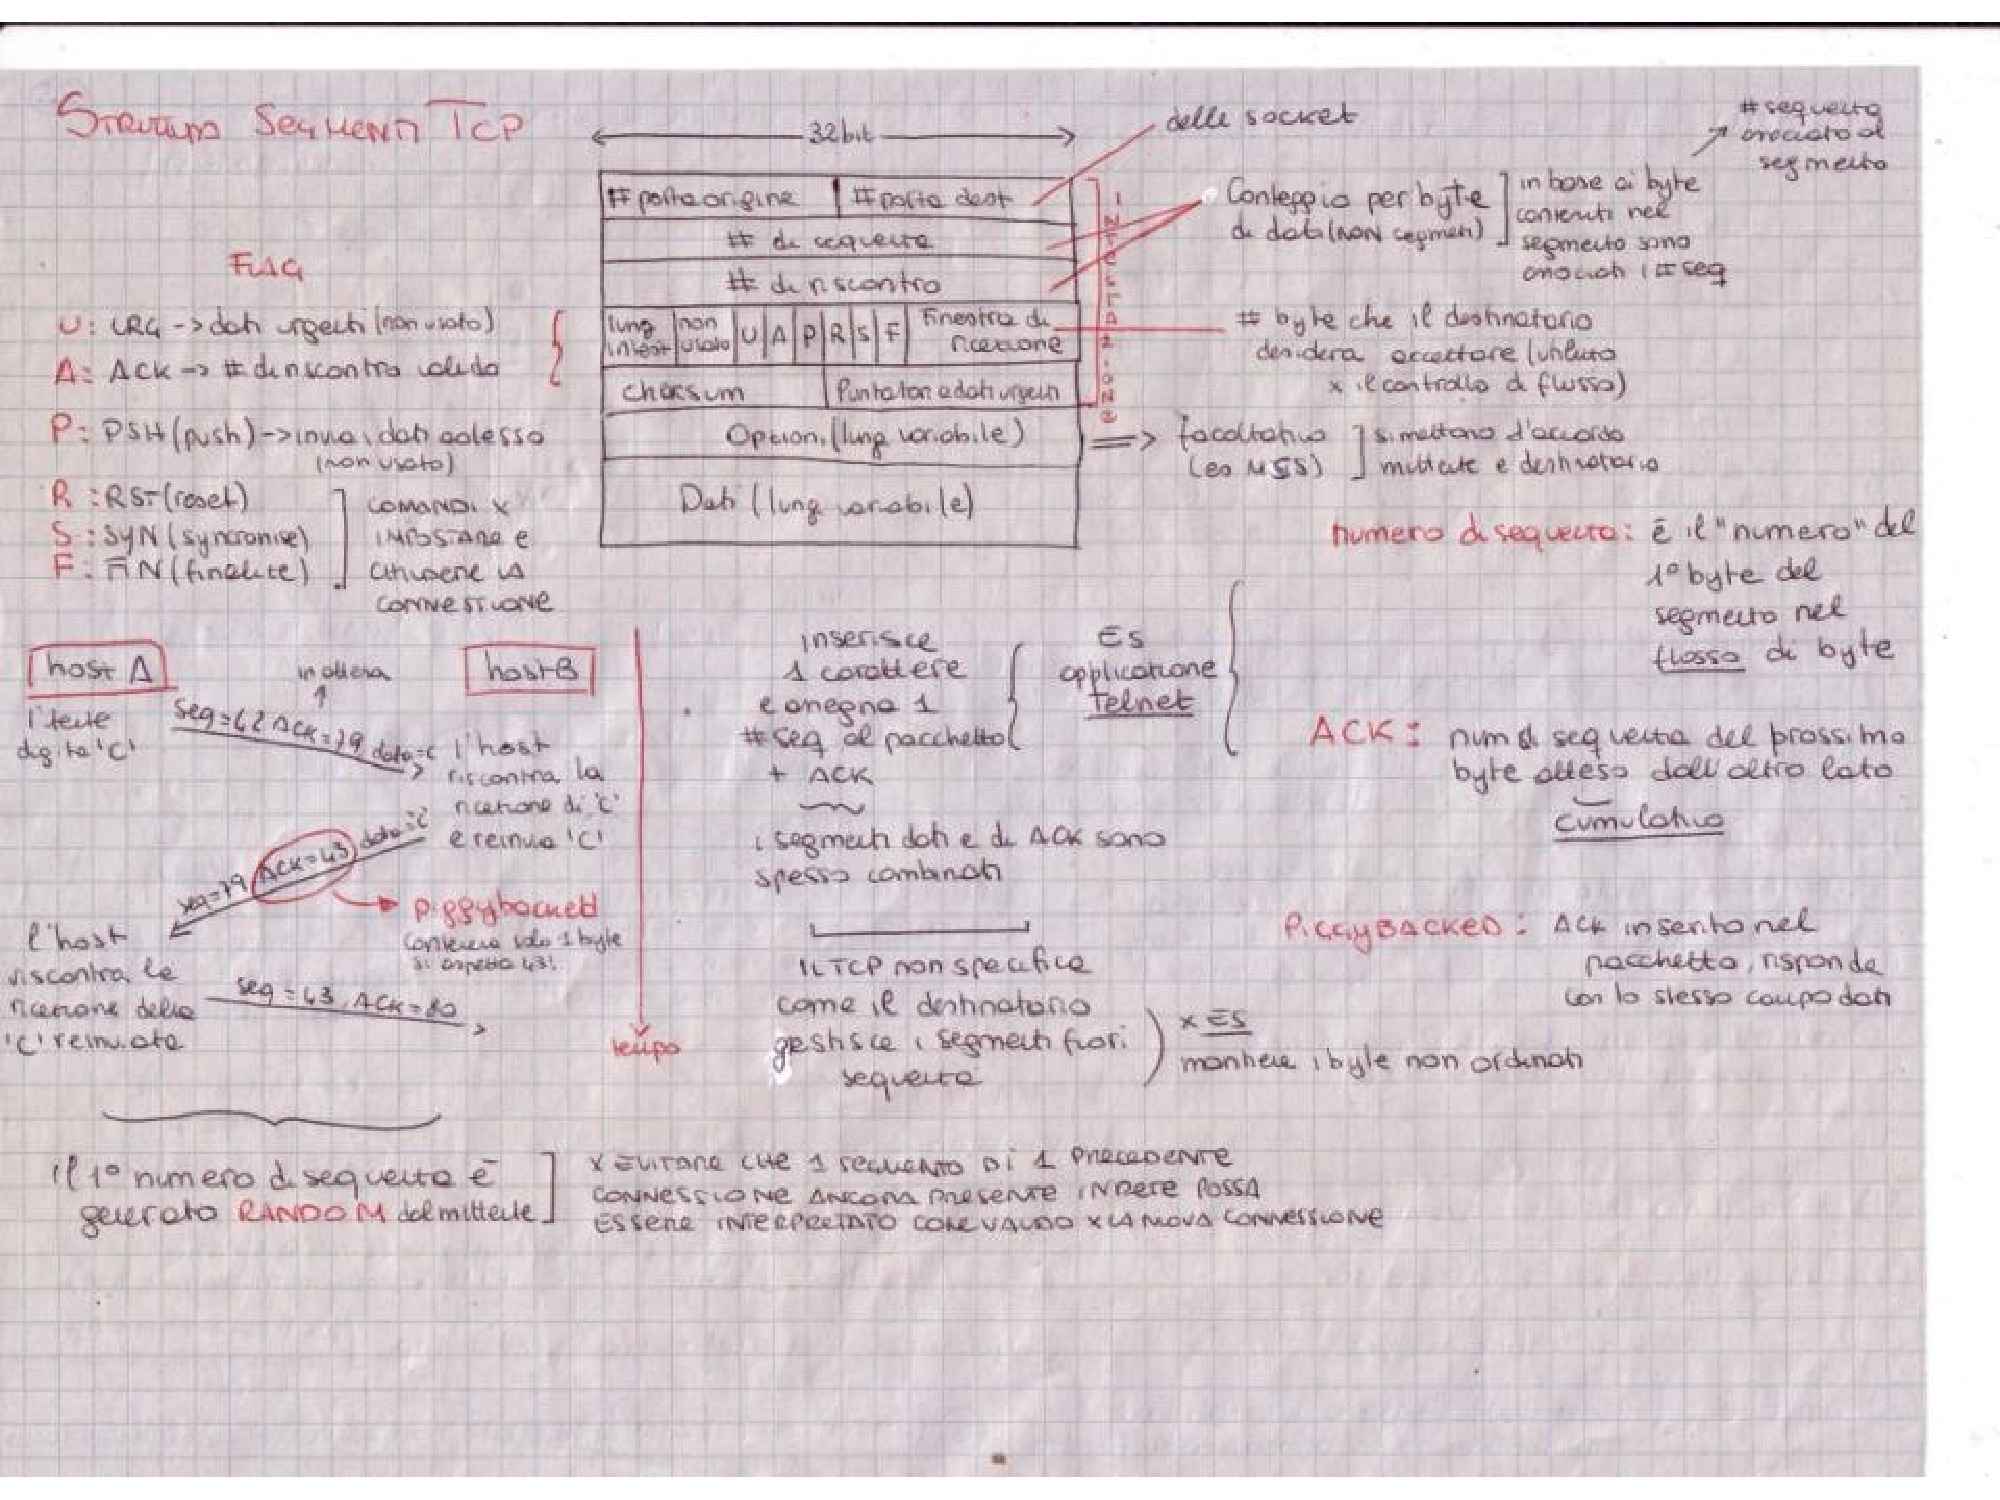 STRUTTURA SEGMENTI TCP
32 bit
delle socket
# sequenza
associato al
segmento
# porta origine
# porta dest
# di sequenza
# di riscontro
lung
intest
non
usato
U A P R S F
Finestra di
ricezione
checksum
Puntatori a dati urgenti
Option (lung variabile)
Dati (lung variabile)
INTESTAZIONE
Conteggio per byte
di dati (NON segmenti)
in base ai byte
contenuti nel
segmento sono
associati i # seq
# byte che il destinatario
desidera accettare (utilizzato
x il controllo di flusso)
facoltativo
(es MSS)
si mettono d'accordo
mittente e destinatario
FLAG
U: URG -> dati urgenti (non usato)
A: ACK -> # di riscontro valido
P: PSH (push) -> invia i dati adesso
(non usato)
R: RST (reset)
S: SYN (syncronise)
F: FIN (finalize)
COMANDI X
IMPOSTARE E
CHIUDERE LA
CONNESSIONE
numero di sequenza: è il "numero" del
1° byte del
segmento nel
flusso di byte
ACK: num di sequenza del prossimo
byte atteso dall'altro lato
cumulativo
PIGGYBACKED: ACK inserito nel
pacchetto, risponde
con lo stesso campo dati
host A
host B
in attesa
l'utente
digita 'C'
Seq=42 ACK=79 data=c
l'host
riscontra la
ricezione di 'C'
e reinvia 'C'
seq=79 ACK=43 data='c'
piggybacked
conteneva solo 1 byte
si aspetta 43!
l'host
riscontra la
ricezione della
'C' reinviata
seq=43, ACK=80
tempo
inserisce
1 carattere
e assegna 1
# seq al pacchetto
+ ACK
ES
applicazione
Telnet
i segmenti dati e di ACK sono
spesso combinati
IL TCP non specifica
come il destinatario
gestisce i segmenti fuori
sequenza
x ES
mantiene i byte non ordinati
il 1° numero di sequenza è
generato RANDOM dal mittente
X EVITARE CHE 1 SEGMENTO DI 1 PRECEDENTE
CONNESSIONE ANCORA PRESENTE IN RETE POSSA
ESSERE INTERPRETATO COME VALIDO X LA NUOVA CONNESSIONE